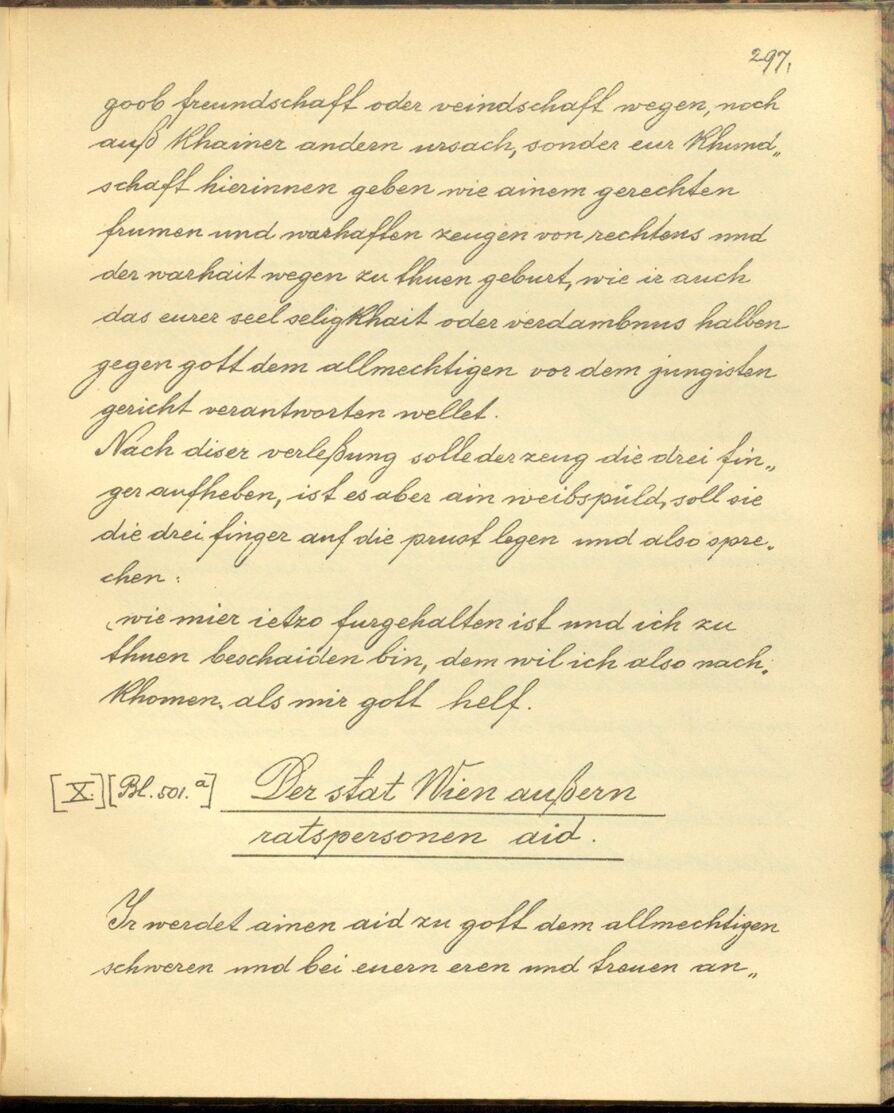 297.
goob freundschaft oder veindschaft wegen, noch
auß khainer andern ursach, sonder eur khund„
schaft hierinnen geben wie ainem gerechten
frumen und warhaften zeugen von rechtens und
der warhait wegen zu thuen geburt, wie ir auch
das eurer seel seligkhait oder verdambnus halben
gegen gott dem allmechtigen vor dem jungisten
gericht verantworten wellet.
Nach diser verleßung solle der zeug die drei fin„
ger aufheben, ist es aber ain weibspüld, soll sie
die drei finger auf die prust legen und also spre„
chen:
„wie mier ietzo furgehalten ist und ich zu
thuen beschaiden bin, dem wil ich also nach„
khomen, als mir gott helf.
[X.] [Bl. 501.a] Der stat Wien außern
ratspersonen aid.
Ir werdet ainen aid zu gott dem allmechtigen
schweren und bei euern eren und treuen an„